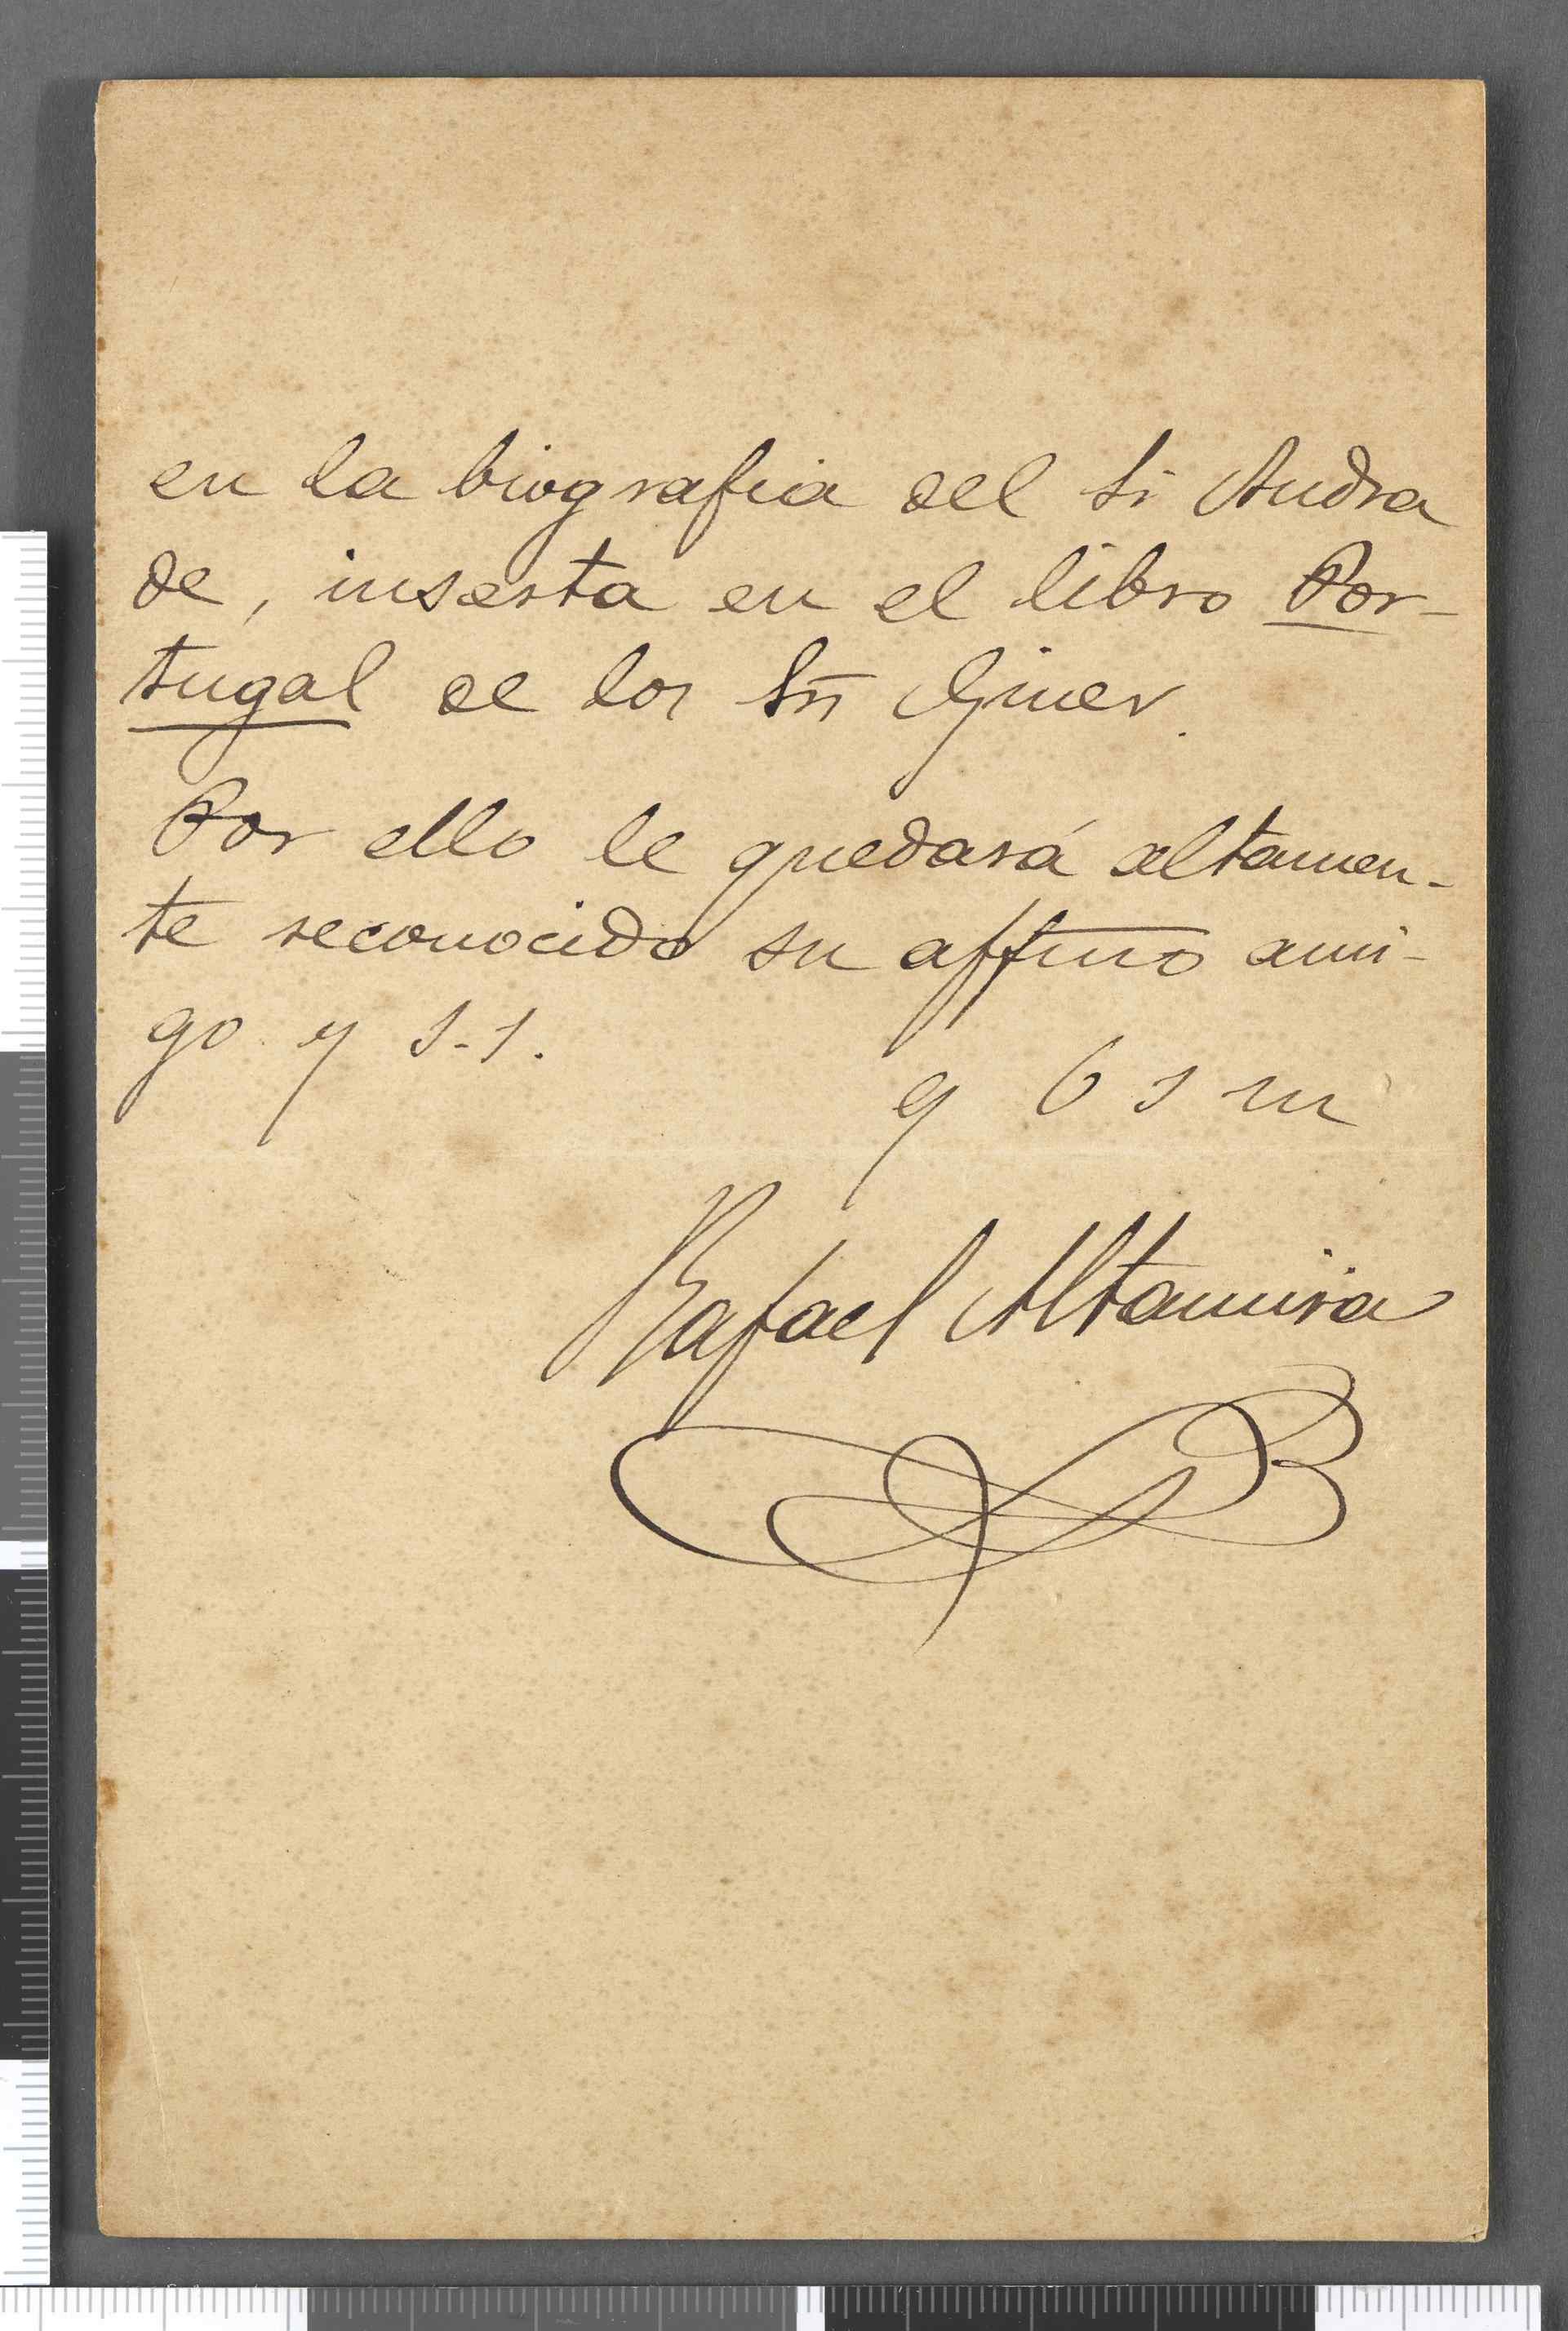 en la biografia del Sr Andra
de, inserta en el libro Por-
tugal de los Srs Giner.
Por ello le quedará altamen-
te reconocido su affmo ami-
go y s.s.
q b s m
Rafael Altamira